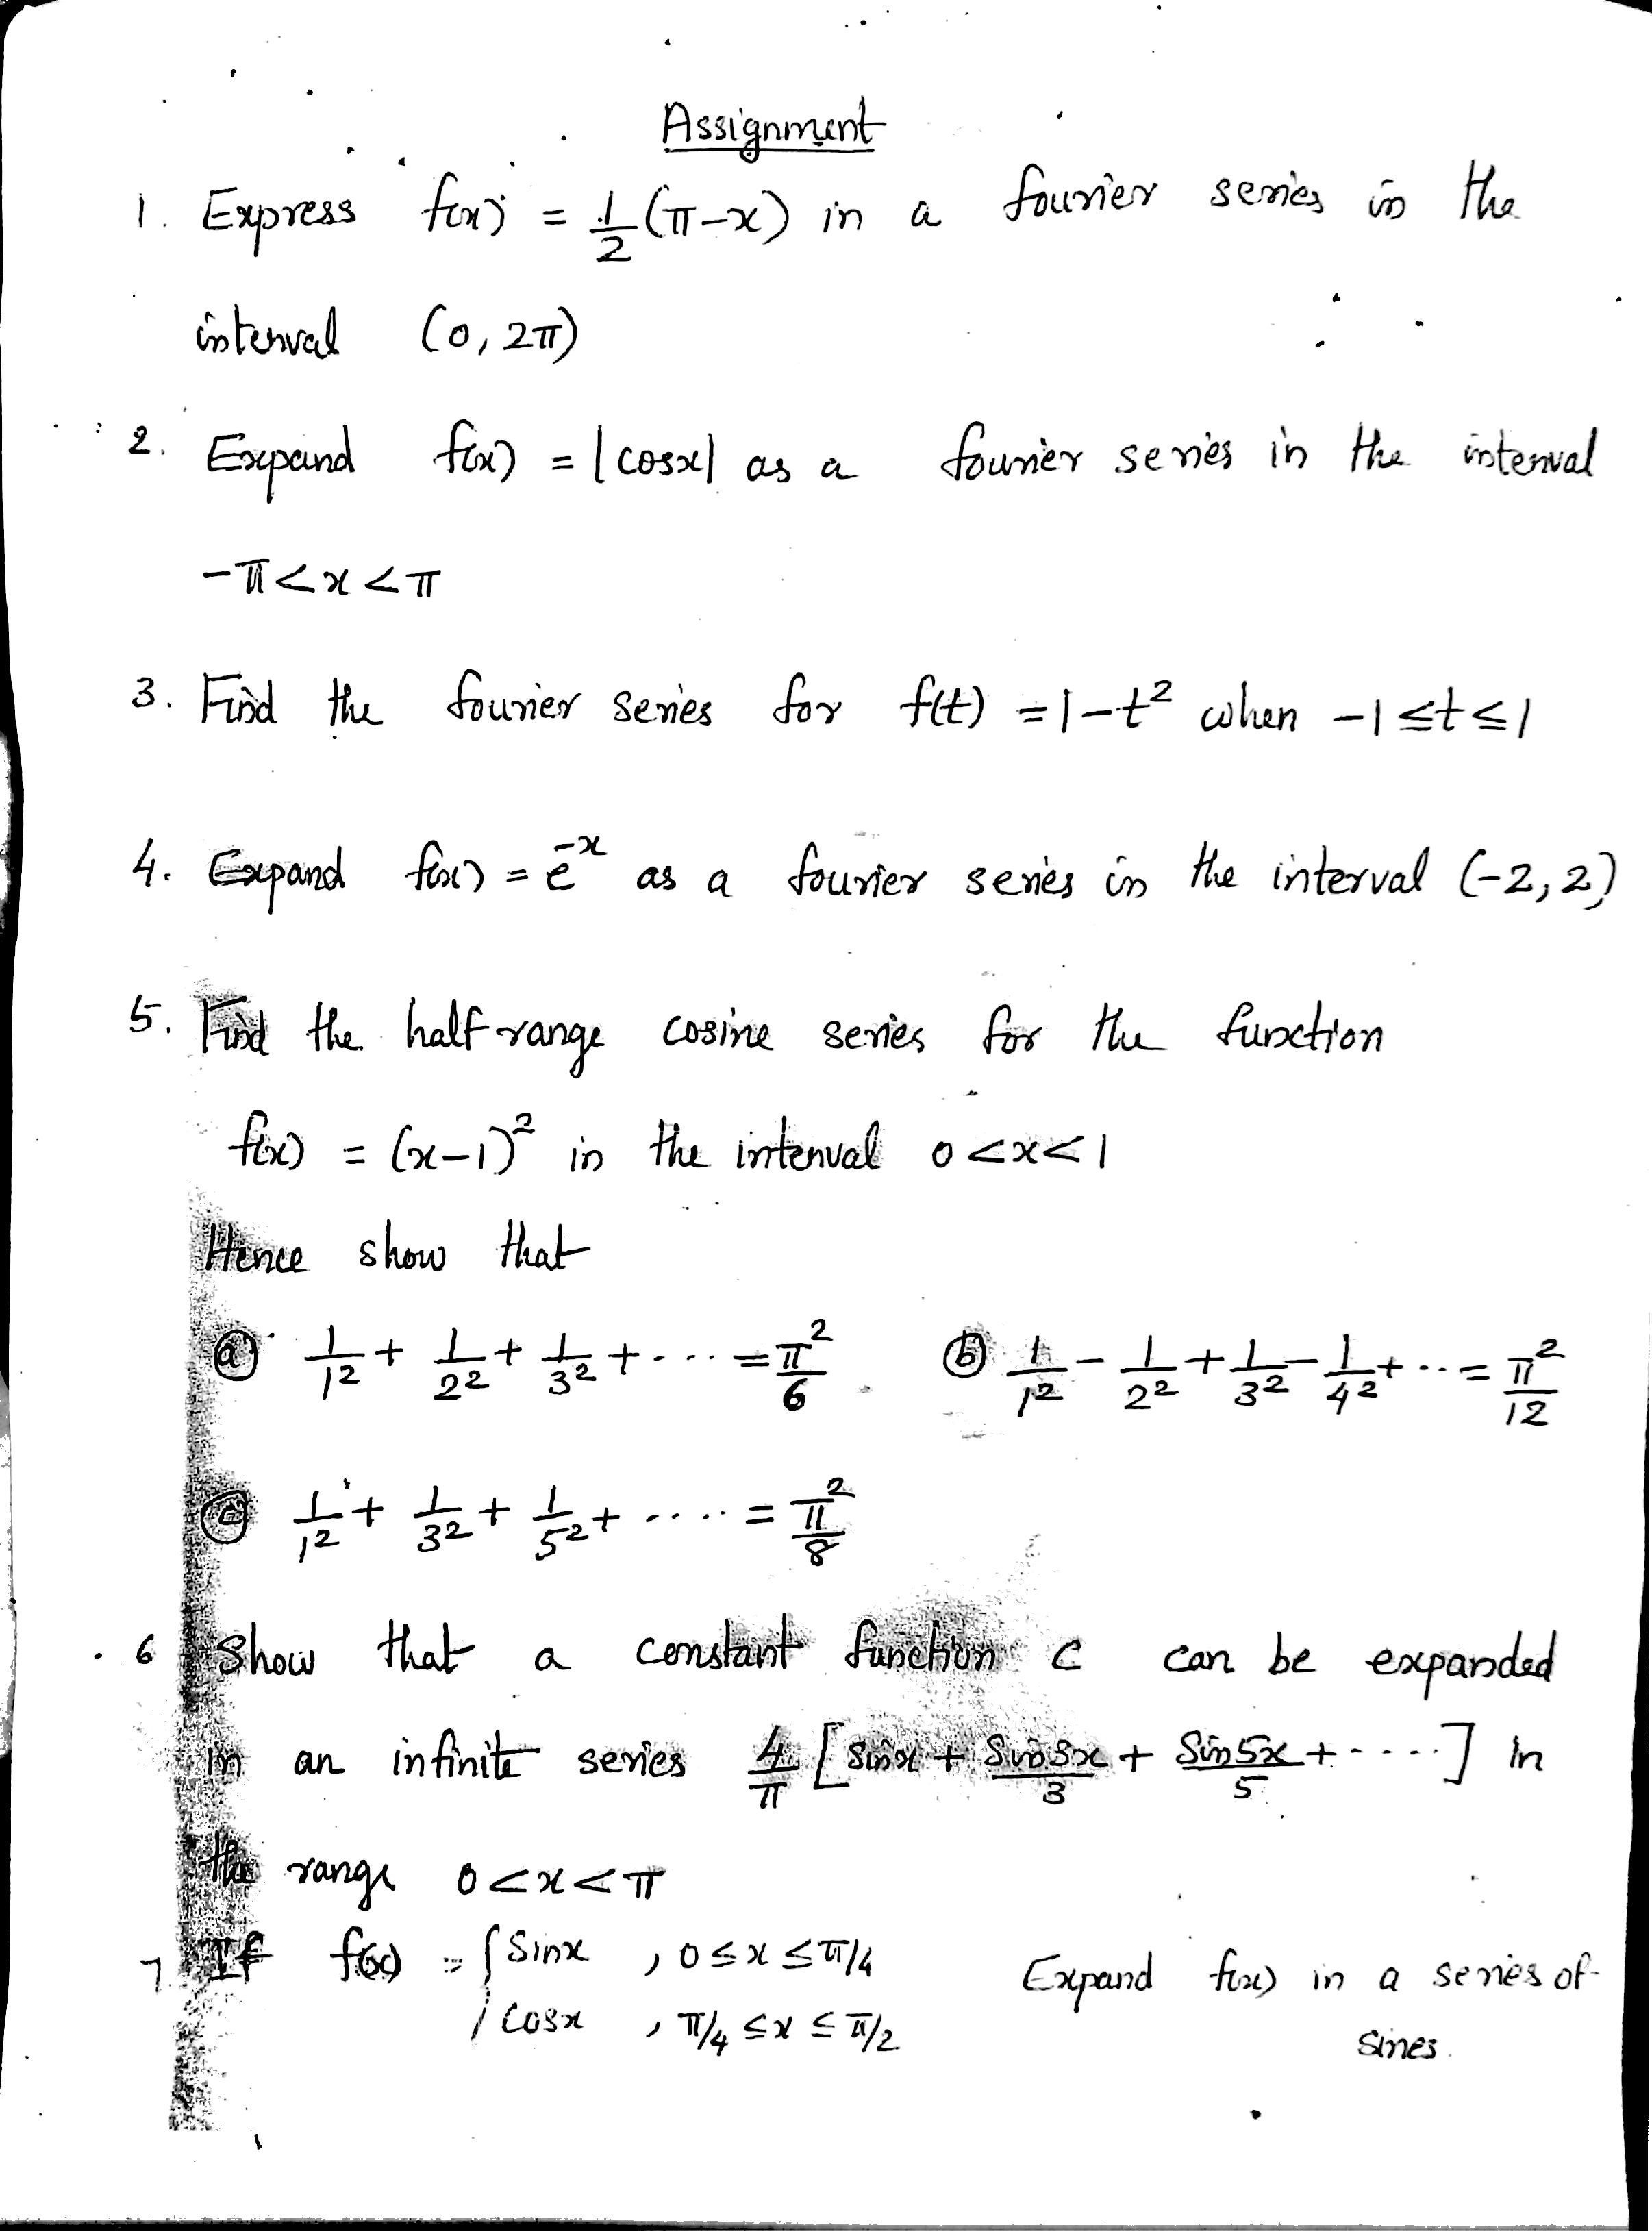 Assignment
1. Express f(x) = 1/2 (π-x) in a fourier series in the
interval (0, 2π)
2. Expand f(x) = |cosx| as a fourier series in the interval
-π<x<π
3. Find the fourier series for f(t) = 1-t² when -1≤t≤1
4. Expand f(x) = e^-x as a fourier series in the interval (-2, 2)
5. Find the half range cosine series for the function
f(x) = (x-1)² in the interval 0<x<1
Hence show that
(a) 1/1² + 1/2² + 1/3² + .... = π²/6 (b) 1/1² - 1/2² + 1/3² - 1/4² + ... = π²/12
(c) 1/1² + 1/3² + 1/5² + ..... = π²/8
6 Show that a constant function c can be expanded
in an infinite series 4/π [sinx + Sin3x/3 + Sin5x/5 + .....] in
the range 0<x<π
7. If f(x) = { Sinx , 0≤x≤π/4 Expand f(x) in a series of
cosx , π/4≤x≤π/2 sines.